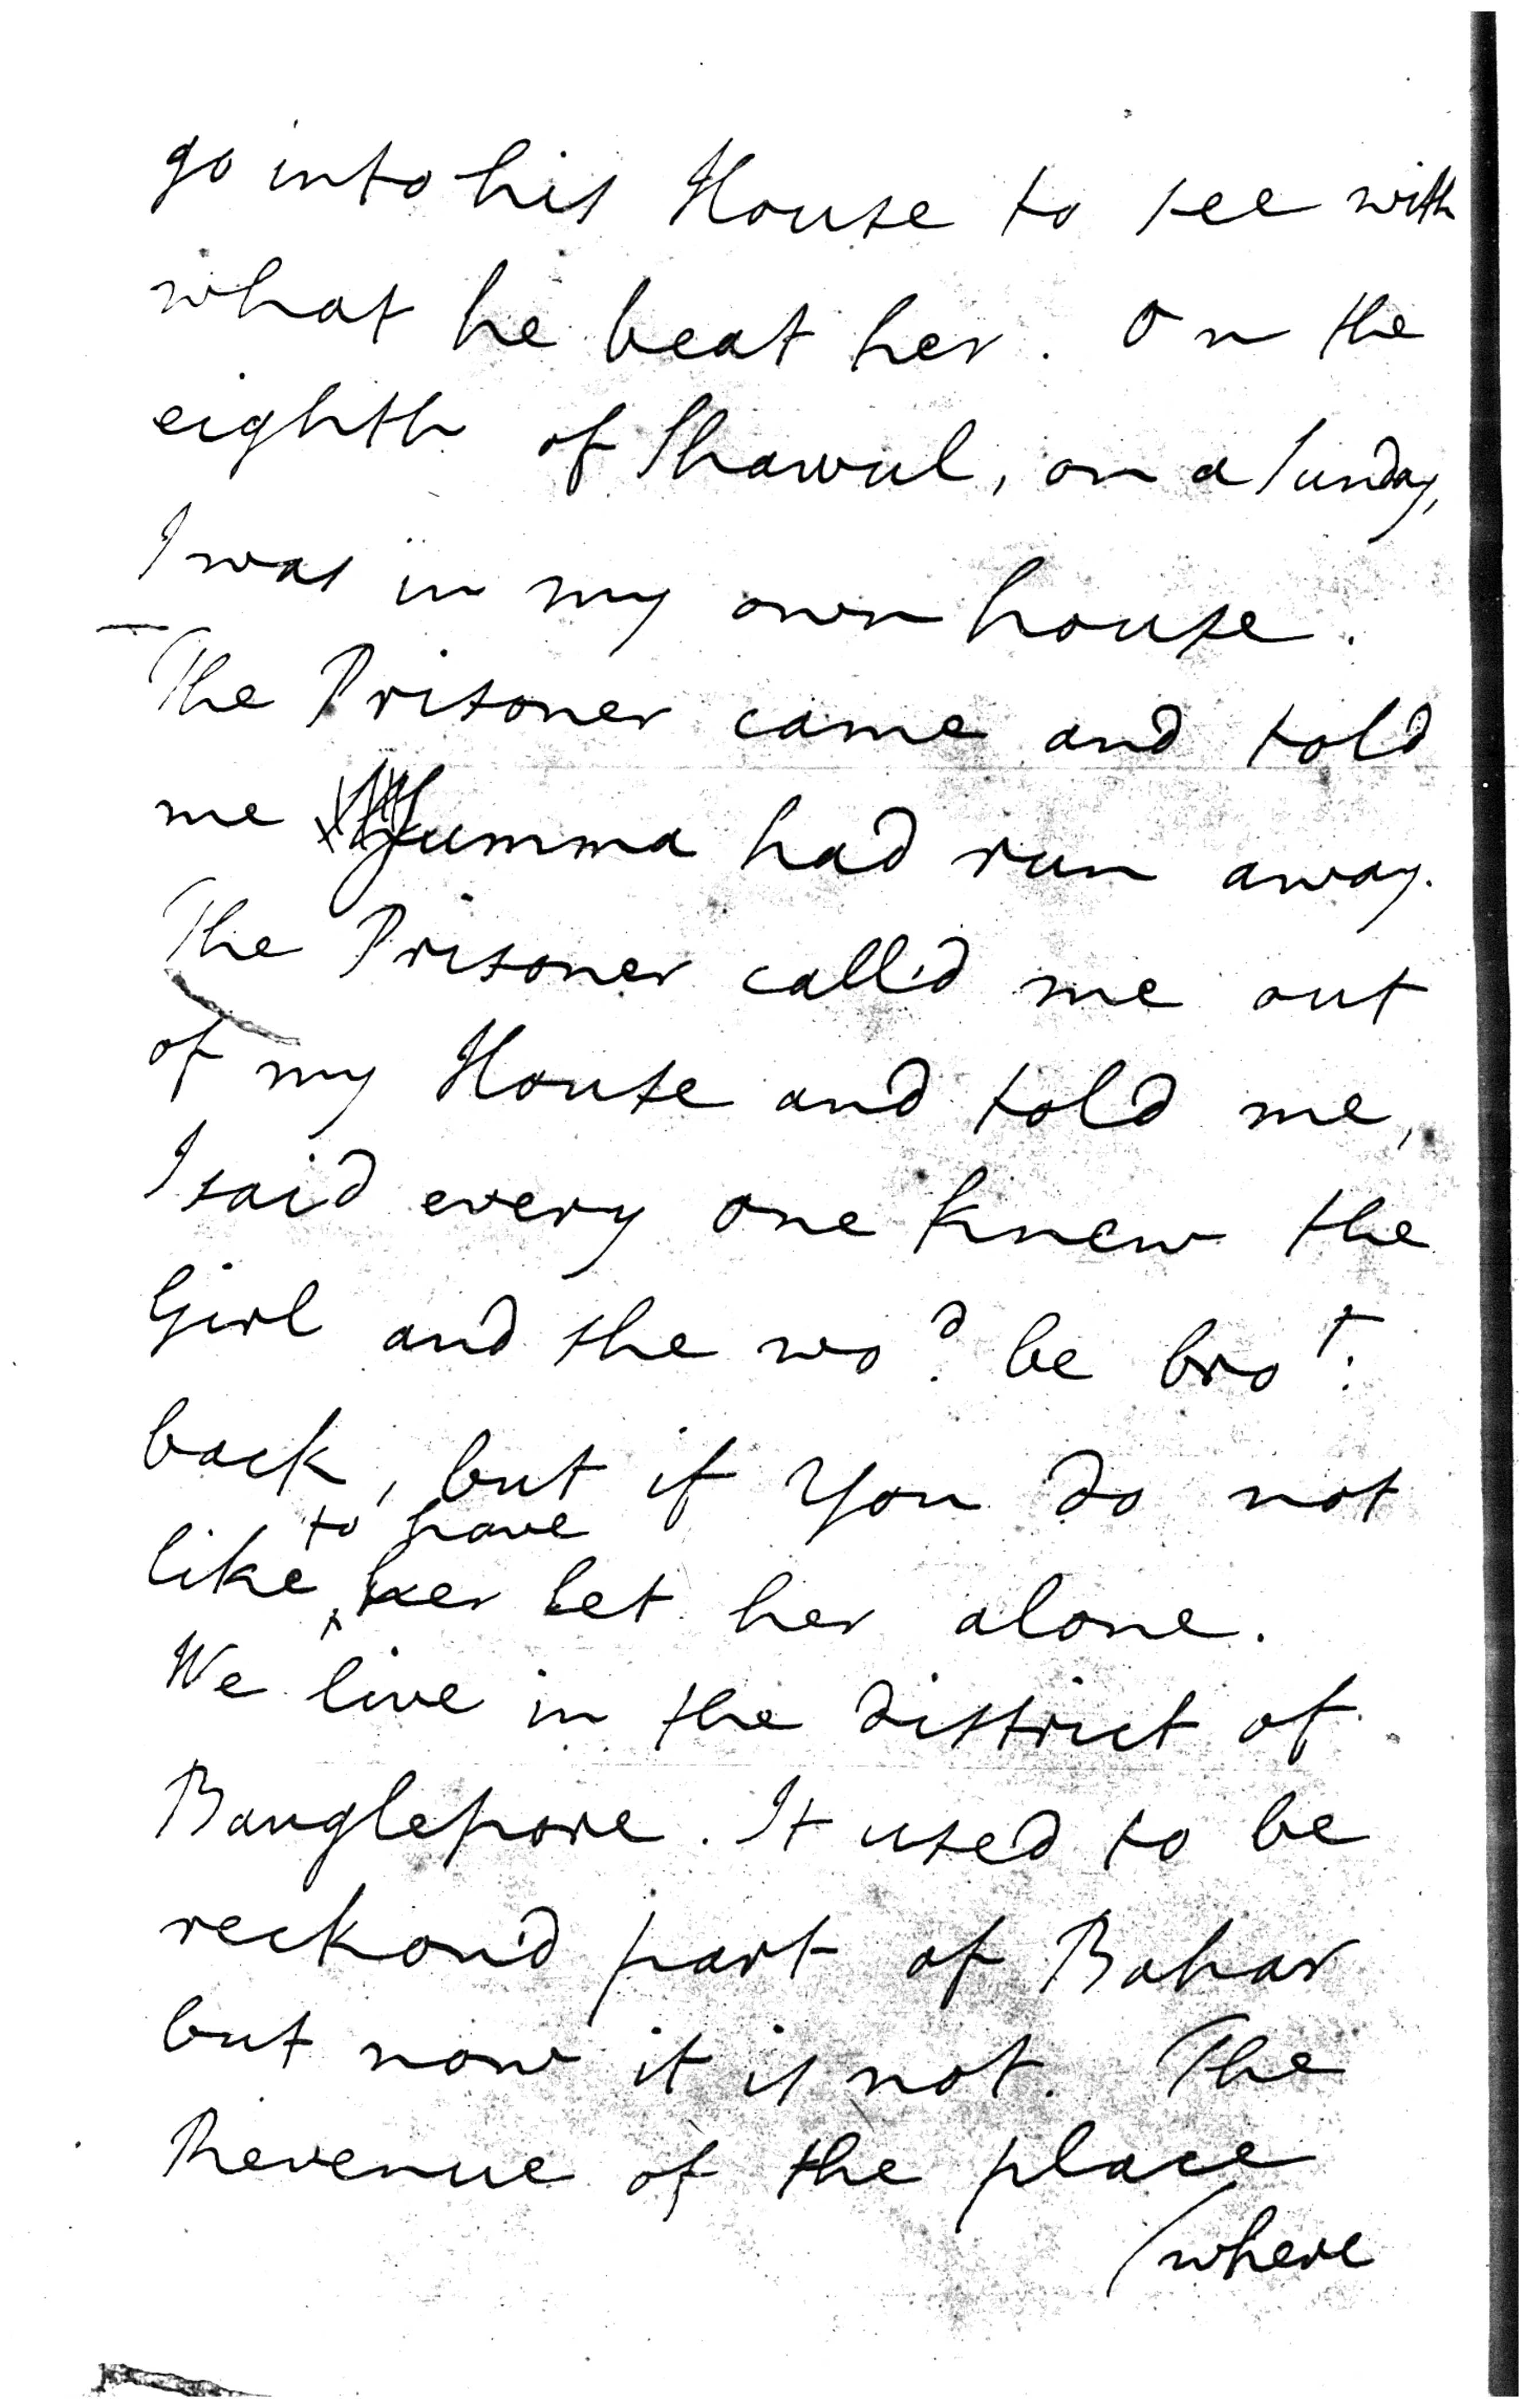 go into his House to see with
what he beat her. On the
eighth of Shawul, on a Sunday,
I was in my own house.
The Prisoner came and told
me Jumma had run away.
The Prisoner call'd me out
of my House and told me,
I said every one knew the
Girl and she wo^d. be bro^t.
back, but if You do not
to have
like her let her alone.
We live in the district of
Bauglepore. It used to be
reckon'd part of Bahar
but now it is not. The
Revenue of the place
(where